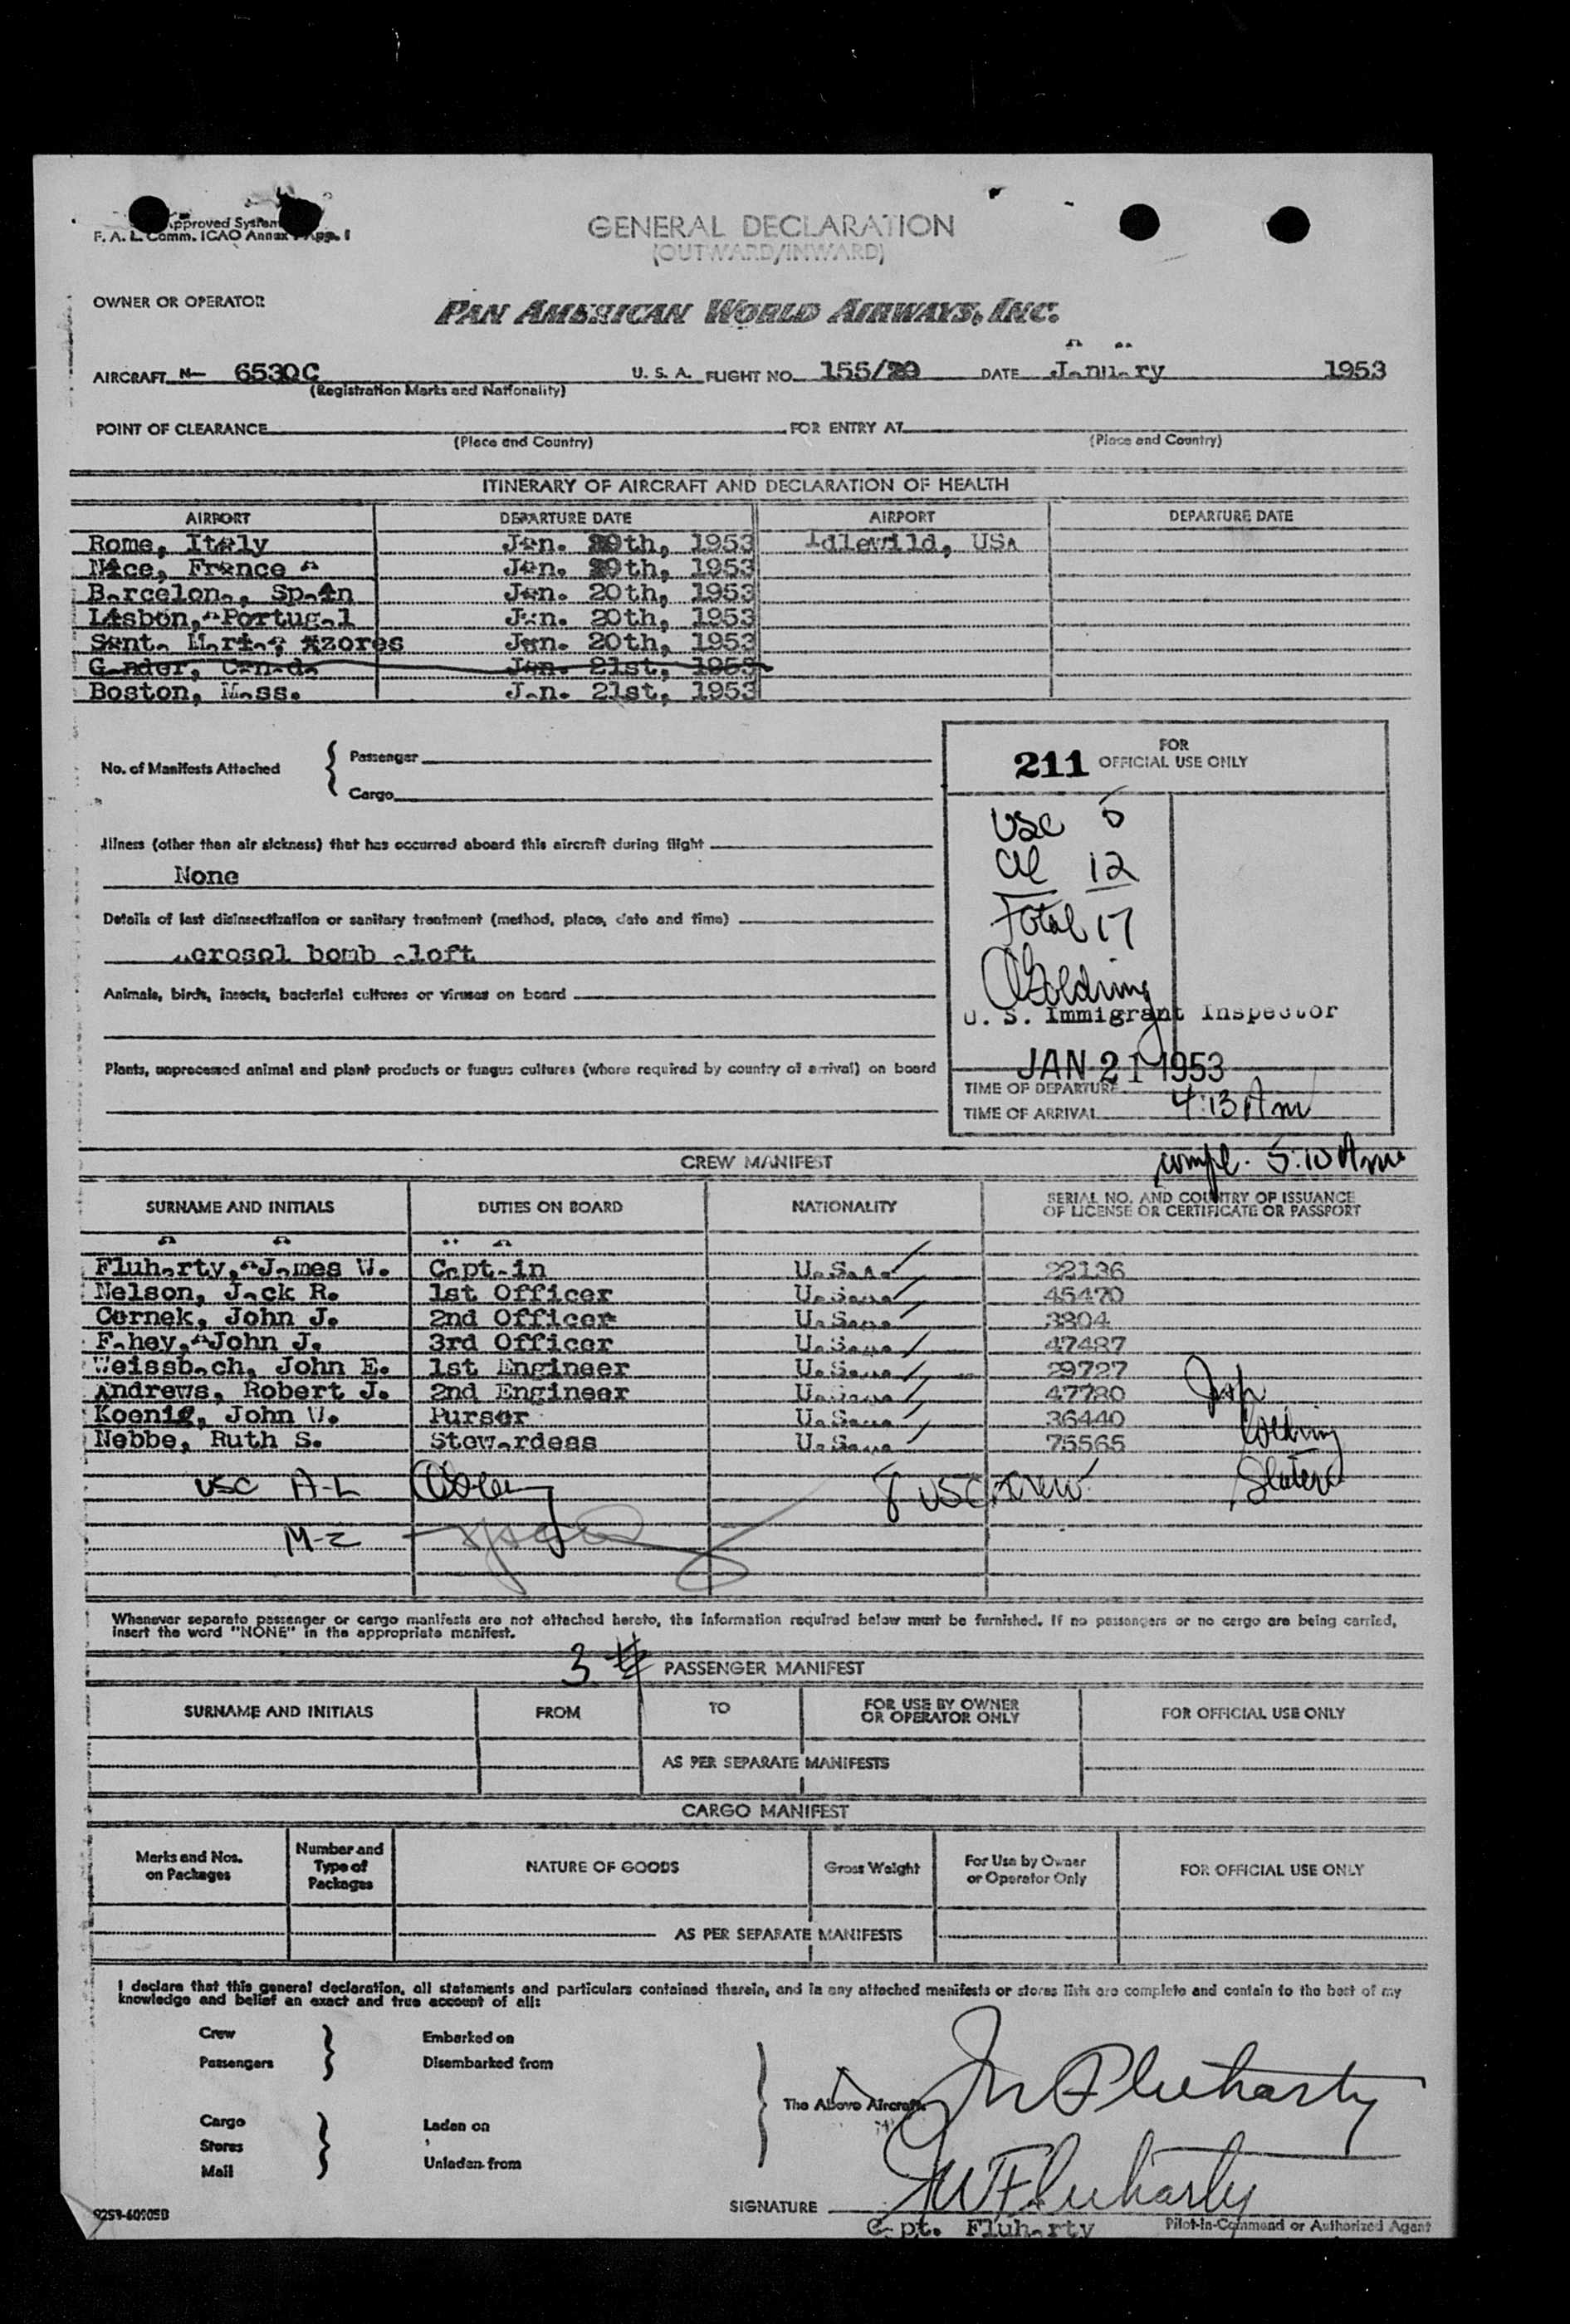 Approved System
F. A. L. Comm. ICAO Annex App. I
GENERAL DECLARATION
(OUTWARD/INWARD)
OWNER OR OPERATOR
PAN AMERICAN WORLD AIRWAYS, INC.
AIRCRAFT N- 6530C U. S. A. FLIGHT NO. 155/20 DATE January 1953
(Registration Marks and Nationality)
POINT OF CLEARANCE FOR ENTRY AT
(Place and Country) (Place and Country)
ITINERARY OF AIRCRAFT AND DECLARATION OF HEALTH
AIRPORT DEPARTURE DATE AIRPORT DEPARTURE DATE
Rome, Italy Jan. 20th, 1953 Idlewild, USA
Nice, France Jan. 20th, 1953
Barcelona, Spain Jan. 20th, 1953
Lisbon, Portugal Jan. 20th, 1953
Santa Maria, Azores Jan. 20th, 1953
Gander, Canada Jan. 21st, 1953
Boston, Mass. Jan. 21st, 1953
No. of Manifests Attached { Passenger
Cargo
211 FOR OFFICIAL USE ONLY
USC 5
Al 12
Total 17
Goldring
U. S. Immigrant Inspector
JAN 21 1953
TIME OF DEPARTURE
TIME OF ARRIVAL 4:13 AM
compl. 5:10 AM
Illness (other than air sickness) that has occurred aboard this aircraft during flight
None
Details of last disinsectization or sanitary treatment (method, place, date and time)
Aerosol bomb aloft
Animals, birds, insects, bacterial cultures or viruses on board
Plants, unprocessed animal and plant products or fungus cultures (where required by country of arrival) on board
CREW MANIFEST
SURNAME AND INITIALS DUTIES ON BOARD NATIONALITY SERIAL NO. AND COUNTRY OF ISSUANCE OF LICENSE OR CERTIFICATE OR PASSPORT
Fluharty, James W. Captain U.S.A. 22136
Nelson, Jack R. 1st Officer U.S.A. 45470
Cernek, John J. 2nd Officer U.S.A. 3804
Fahey, John J. 3rd Officer U.S.A. 47487
Weissbach, John E. 1st Engineer U.S.A. 29727
Andrews, Robert J. 2nd Engineer U.S.A. 47780
Koenig, John W. Purser U.S.A. 36440
Nebbe, Ruth S. Stewardess U.S.A. 75565
USC A-L 8 USC Crew
M-Z
Whenever separate passenger or cargo manifests are not attached hereto, the information required below must be furnished. If no passengers or no cargo are being carried,
insert the word "NONE" in the appropriate manifest.
3 PASSENGER MANIFEST
SURNAME AND INITIALS FROM TO FOR USE BY OWNER OR OPERATOR ONLY FOR OFFICIAL USE ONLY
AS PER SEPARATE MANIFESTS
CARGO MANIFEST
Marks and Nos. on Packages Number and Type of Packages NATURE OF GOODS Gross Weight For Use by Owner or Operator Only FOR OFFICIAL USE ONLY
AS PER SEPARATE MANIFESTS
I declare that this general declaration, all statements and particulars contained therein, and in any attached manifests or stores lists are complete and contain to the best of my
knowledge and belief an exact and true account of all:
Crew Embarked on
Passengers Disembarked from
The Above Aircraft
Cargo Laden on
Stores
Mail Unladen from
JW Fluharty
SIGNATURE JW Fluharty
Capt. Fluharty Pilot-in-Command or Authorized Agent